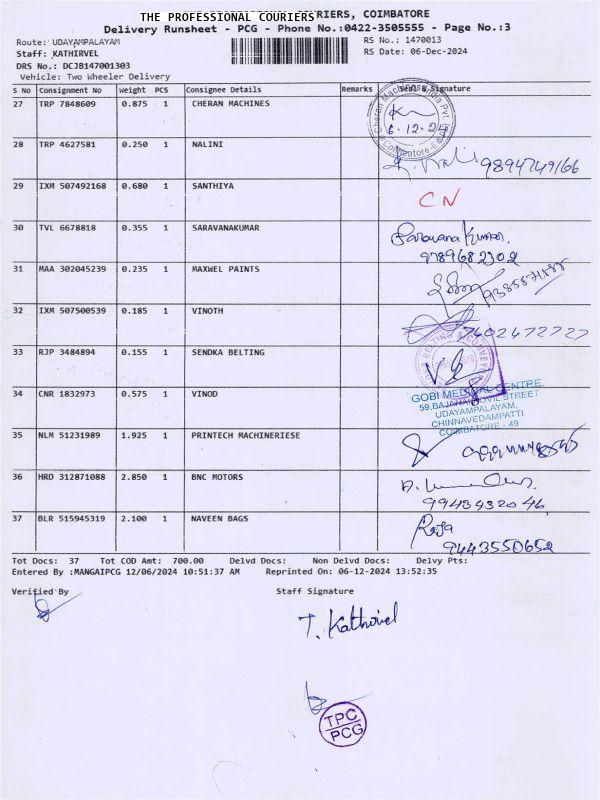 THE PROFESSIONAL COURIERS RIERS, COIMBATORE
Delivery Runsheet - PCG - Phone No.:0422-3505555 - Page No.:3
Route: UDAYAMPALAYAM
RS No.: 1470013
Staff: KATHIRVEL
RS Date: 06-Dec-2024
DRS No.: DCJB147001303
Vehicle: Two Wheeler Delivery
S No Consignment No Weight PCS Consignee Details Remarks Seal & Signature
27 TRP 7848609 0.875 1 CHERAN MACHINES
6.12.24
28 TRP 4627581 0.250 1 NALINI
9894749166
29 IXM 507492168 0.680 1 SANTHIYA
CN
30 TVL 6678818 0.355 1 SARAVANAKUMAR
Saravana Kumar.
9789682302
31 MAA 302045239 0.235 1 MAXWEL PAINTS
32 IXM 507500539 0.185 1 VINOTH
7602672727
33 RJP 3484894 0.155 1 SENDKA BELTING
34 CNR 1832973 0.575 1 VINOD
GOBI MEDICAL CENTRE,
STREET
UDAYAMPALAYAM,
CHINNAVEDAMPATTI
COIMBATORE - 49
35 NLM 51231989 1.925 1 PRINTECH MACHINERIESE
36 HRD 312871088 2.850 1 BNC MOTORS
9943932046
37 BLR 515945319 2.100 1 NAVEEN BAGS
Raja
9443550652
Tot Docs: 37 Tot COD Amt: 700.00 Delvd Docs: Non Delvd Docs: Delvy Pts:
Entered By :MANGAIPCG 12/06/2024 10:51:37 AM Reprinted On: 06-12-2024 13:52:35
Verified By
Staff Signature
T. Kathirvel
TPC
PCG